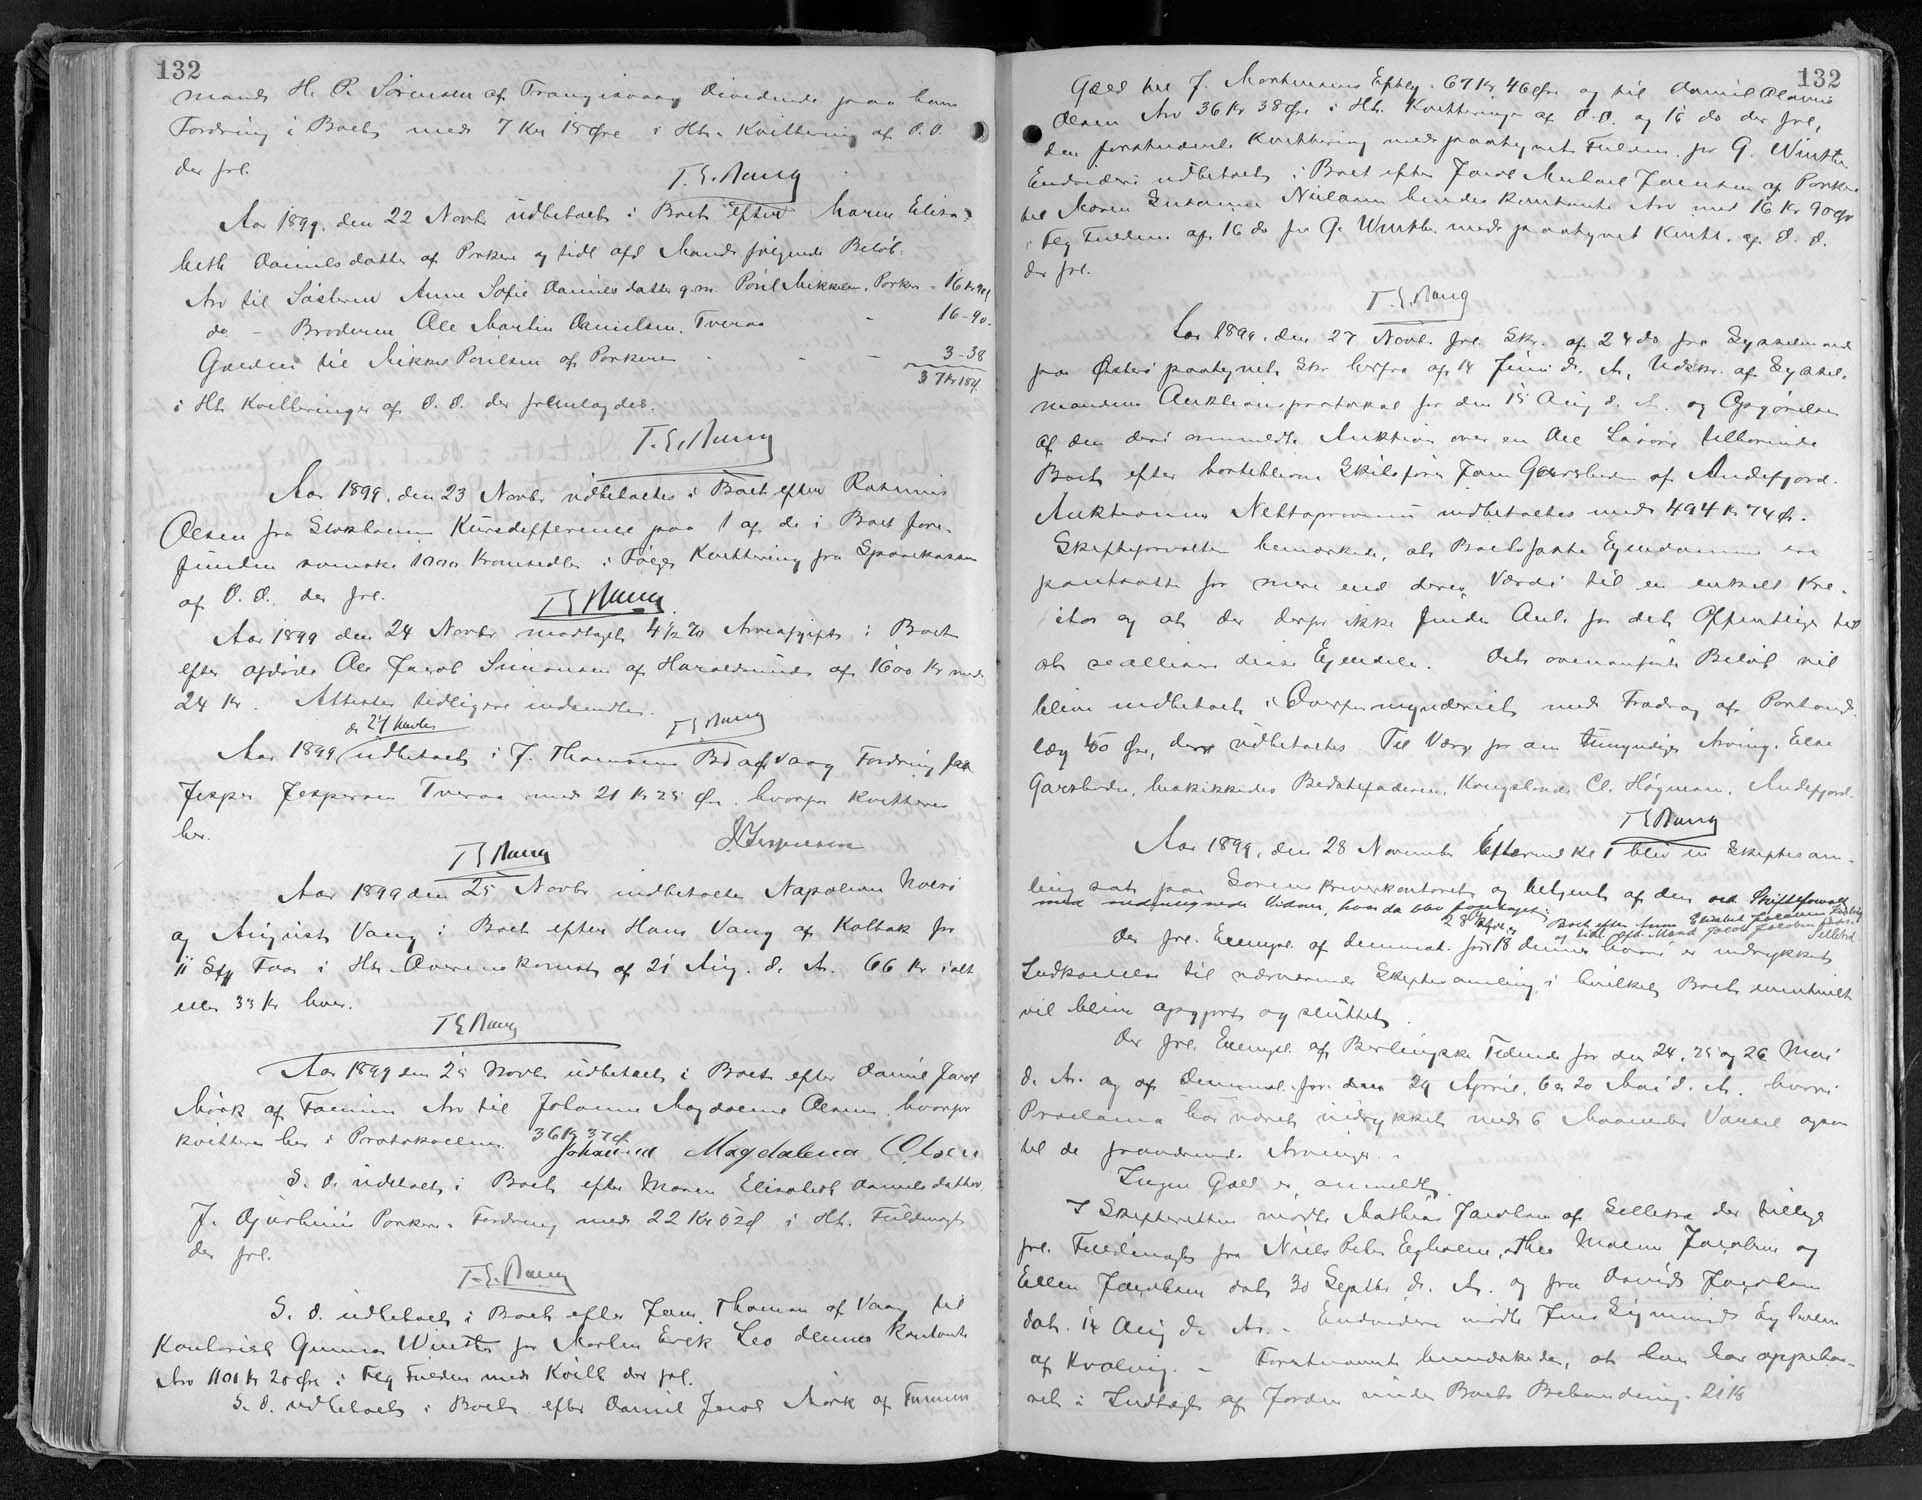 132
mands H. P. Sörensen af Trangisvaag Dividende paa hans
Fordring i Boet med 7 Kr 15 Øre i Hh. Kvittering af D. D.
der frl.
T. E. Bang
Aar 1899, den 22 Novbr udbetalt i Boet efter Maren Elisa-
beth Danielsdatter af Porkere og tidl afd Mand følgende Beløb.
Arv til Søsteren Anne Sofie Danielsdatter g. m. Poul Mikkelsen, Porkere - 16 Kr 90
do - Broderen Ole Martin Danielsen, Tveraa - 16-90.
Gælden til Mikkel Poulsen af Porkere - - - 3-38
37 Kr 18 Ø
i Hh. Kvitteringer af D. D. der fremlagdes.
T. E. Bang
Aar 1899, den 23 Novbr udbetaltes i Boet efter Rasmus
Olsen fra Kursdifference paa 1 af de i Boet fore-
fundne svenske 1000 Kronesedler i Følge Kvittering fra Sparekassen
af D. D. der frl.
T E Bang
Aar 1899 den 24 Novbr modtaget 4 1/2 % Arveafgift i Boet
efter afdøde Ole Jacob Simonsen af Haraldsund af 1600 Kr med
24 Kr. Attester tidligere indsendte.
T E Bang
d. 24 Novbr
Aar 1899 udbetalt i J. Thomsens Bo af Vaag Fordring fra
Jesper Jespersen Tveraa med 21 Kr 25 Øre. hvorfor kvitteres
her.
J Jespersen
T E Bang
Aar 1899 den 25 Novbr indbetalte Napoleon Nolsø
og August Vang i Boet efter Hans Vang af Kolbak for
11 Faar i Hh. Overenskomst af 21 Aug. d. A. 66 Kr ialt
eller 33 Kr hver.
T E Bang
Aar 1899 den 25 Novbr udbetalt i Boet efter Daniel Jacob
Mörk af Famien Arv til Johanne Magdalene Olsen, hvorfor
kvitteres her i Protokollen. 36 Kr 37 Ø
Johanna Magdalena Olsen
S. D. udbetalt i Boet efter Maren Elisabeth Danielsdatter
J. Djurhuus Porkere. Fordring med 22 Kr 52 Ø i Hh. Fuldmagt
der frl.
T. E. Bang
S. D. udbetalt i Boet efter Jens Thomsen af Vaag til
Kontorist Gunnar Winther for Morten Erik Leo dennes kontante
Arv 1101 Kr 20 Øre i Følg Fuldm med Kvitt der frl.
S. D. udbetalt i Boet efter Daniel Jacob Mörk af Famien
132
Gæld til J. Mortensens Eftflg. 67 Kr 46 Øre og til Daniel Olavus
Olsen Arv 36 Kr 38 Øre i Hh. Kvitteringer af D. D. og 16 do der frl,
den førstnævnte Kvittering med paategnet Fuldm. for G. Winther
Endvidere udbetalt i Boet efter Jacob Michael Joensen af Porkere
til Maren Susanna Nielsen hendes kontante Arv med 16 Kr 90 Øre
i Følg Fuldm. af 16 do for G. Winther med paategnet Kvitt. af D. D.
der frl.
T. E. Bang
Aar 1899, den 27 Novbr. frl. Skr. af 24 do fra Sysselmanden
paa Østerø paategnet Skr herfra af 14 Juni d. A, Udskr. af Syssel-
mandens Auktionsprotokol for den 15 Aug d. A. og Opgørelse
af den deri ommeldte Auktion over en Del Løsøre tilhørende
Boet efter bortblevne Skibsfører Jens Garslodin af Andefjord.
Auktionens Nettoprovenu indbetaltes med 494 Kr 74 Ø.
Skifteforvalteren bemærkede, at Boets faste Ejendomme ere
pantsatte for mere end deres Værdi til en enkelt Kre-
ditor og at der derfor ikke findes Anl. for det Offentlige til
at realisere disse Ejendele. Det ovenanførte Beløb vil
blive indbetalt i Overformynderiet med Fradrag af Portoud-
læg 40 Øre, der udbetaltes Til Værge for den umyndige Arving. Else
Garslodin, beskikkedes Bedstefaderen, Kongsbonde Cl. Högnesen, Andefjord.
T E Bang
Aar 1899, den 28 November Eftermd Kl 1 blev en Skiftesam-
ling sat paa Sorenskriverkontoret og betjent af den ord Skifteforvalter
med undertegnede Vidner, hvor da blev foretaget:
28 Boet efter Anne Elisabet Jacobsen
og tidl. afd. Mand Jacob Jacobsen Selletræ
Der frl. Exempl. af Dimmal. for 18 dennes hvori er indrykket
Indkaldelse til nærværende Skiftesamling i hvilket Boet eventuelt
vil blive opgjort og sluttet.
Der frl. Exempl. af Berlingske Tidende for den 24, 25 og 26 Mai
d. A. og af Dimmal. for den 29 April, 6 og 20 Mai d. A. hvori
Proclama har været indrykket med 6 Maaneders Varsel ogsaa
til de fraværende Arvinger.
Ingen Gæld er anmeldt.
I Skifteretten mødte Mathias Jacobsen af Selletræ der tillige
frl. Fuldmagt fra Niels Peter Egholm, Maren Jacobsen og
Ellen Jacobsen dat. 30 Septbr d. A. og fra David Jacobsen
dat. 14 Aug d. A. - Endvidere mødte Jens Sigmund Egholm
af Hvalvig. - Førstnævnte bemærkede, at han har oppebaa-
ret i Indtægt af Jorden under Boets Behandling. 21 Kr